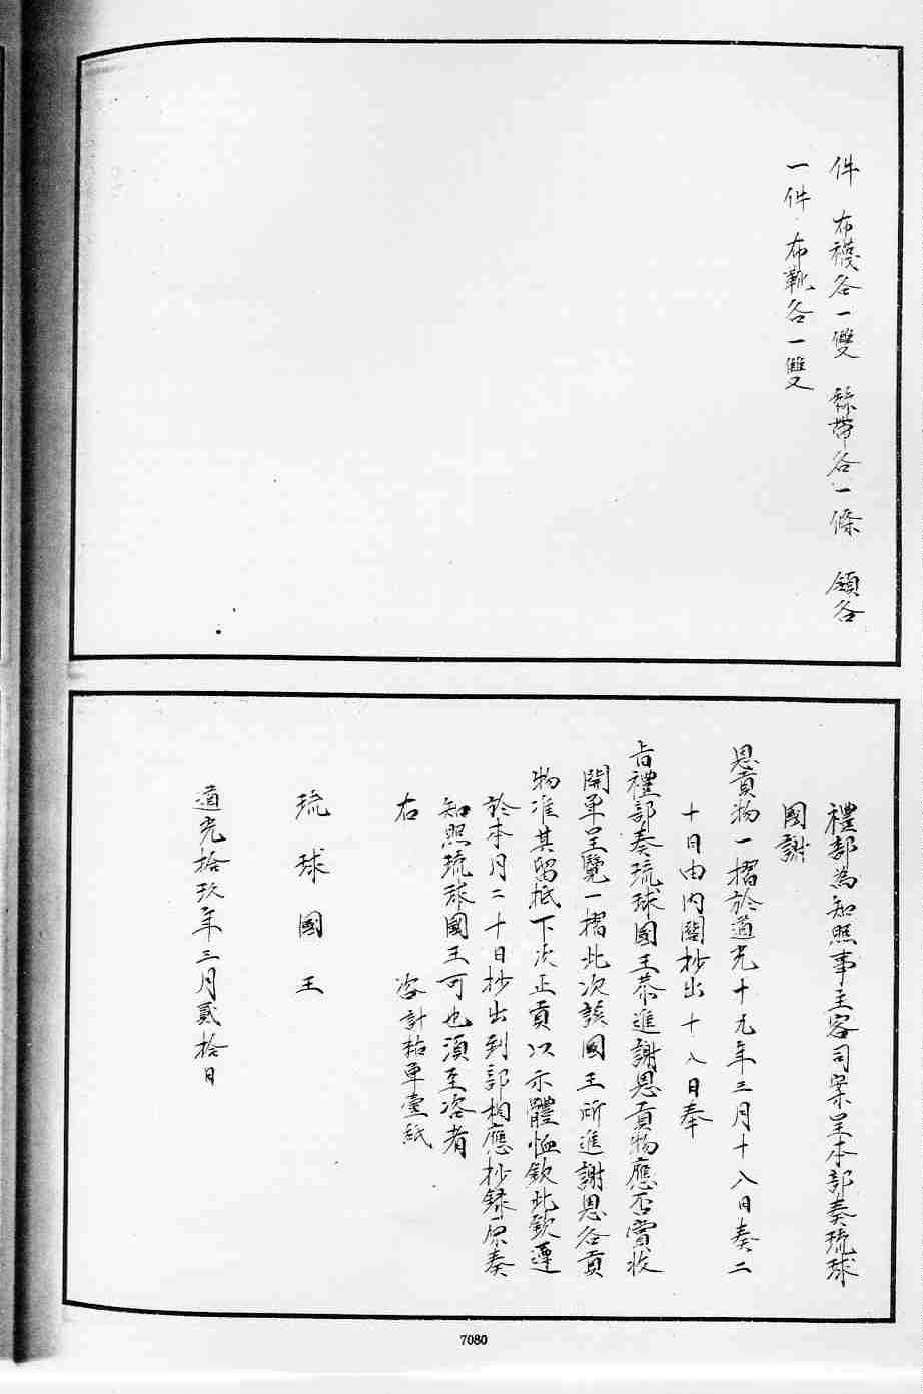 件　布襪各一雙　絲帶各一條　領各
一件　布靴各一雙
禮部為知照事主客司案呈本部奏琉球
國謝
恩貢物一摺於道光十九年三月十八日奏二
十日由內閣抄出十八日奉
旨禮部奏琉球國王恭進謝恩貢物應否賞收
開單呈覽一摺此次該國王所進謝恩各貢
物准其留抵下次正貢以示體恤欽此欽遵
於本月二十日抄出到部相應抄錄原奏
知照琉球國王可也須至咨者
右　咨計粘單壹紙
琉球國王
道光拾玖年三月貳拾日
7080